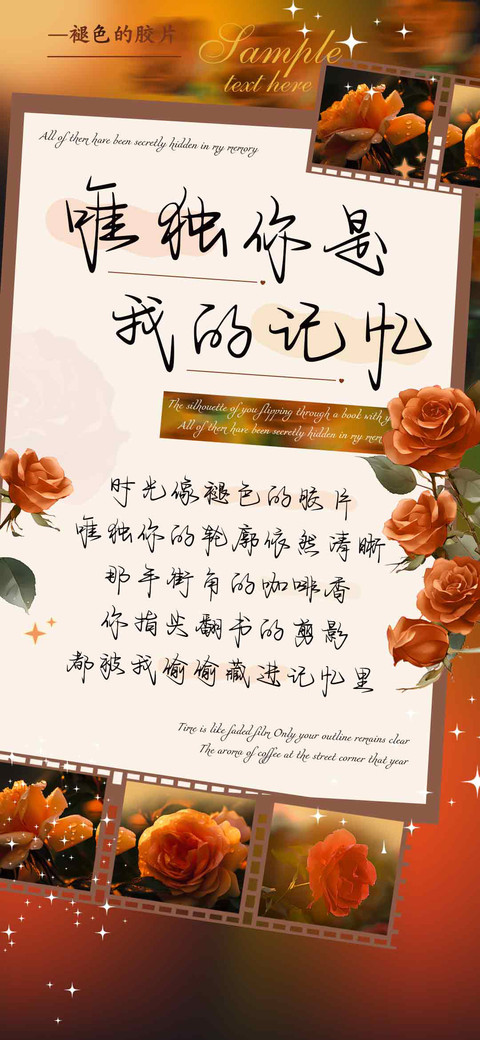 —褪色的胶片
Sample
text here
All of them have been secretly hidden in my memory
唯独你是
我的记忆
The silhouette of you flipping through a book with y
All of them have been secretly hidden in my mem
时光像褪色的胶片
唯独你的轮廓依然清晰
那年街角的咖啡香
你指尖翻书的剪影
都被我偷偷藏进记忆里
Time is like faded film Only your outline remains clear
The aroma of coffee at the street corner that year